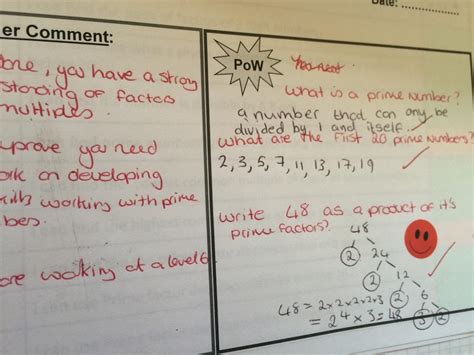 Date: ............
er Comment:
one, you have a strong
standing of factors
multiples.
mprove you need
ork on developing
kills working with prime
bers.
are working at a level 6
PoW
You next
What is a prime number?
a number that can only be
divided by 1 and itself.
What are the first 20 prime numbers?
2, 3, 5, 7, 11, 13, 17, 19
Write 48 as a product of it's
prime factors?
48
2 24
2 12
2 6
3 2
48 = 2x2x2x2x3
= 2⁴ x 3 = 48